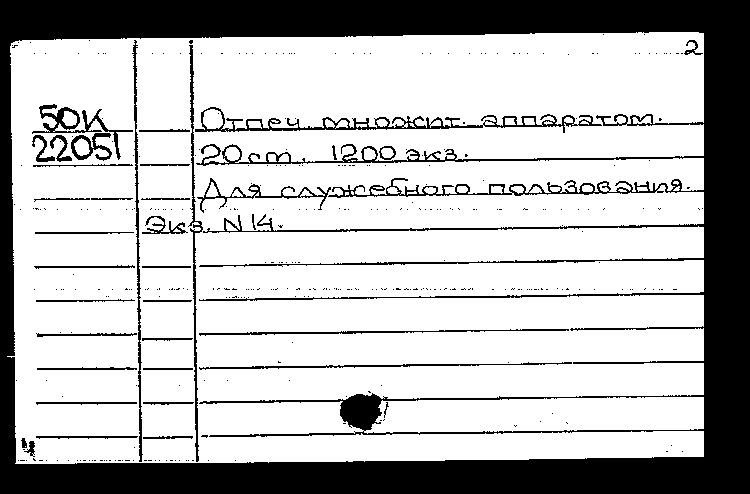 2
50К
22051
Отпеч. множит. аппаратом.
20 ст. 1200 экз.
Для служебного пользования.
Экз. N 14.
4